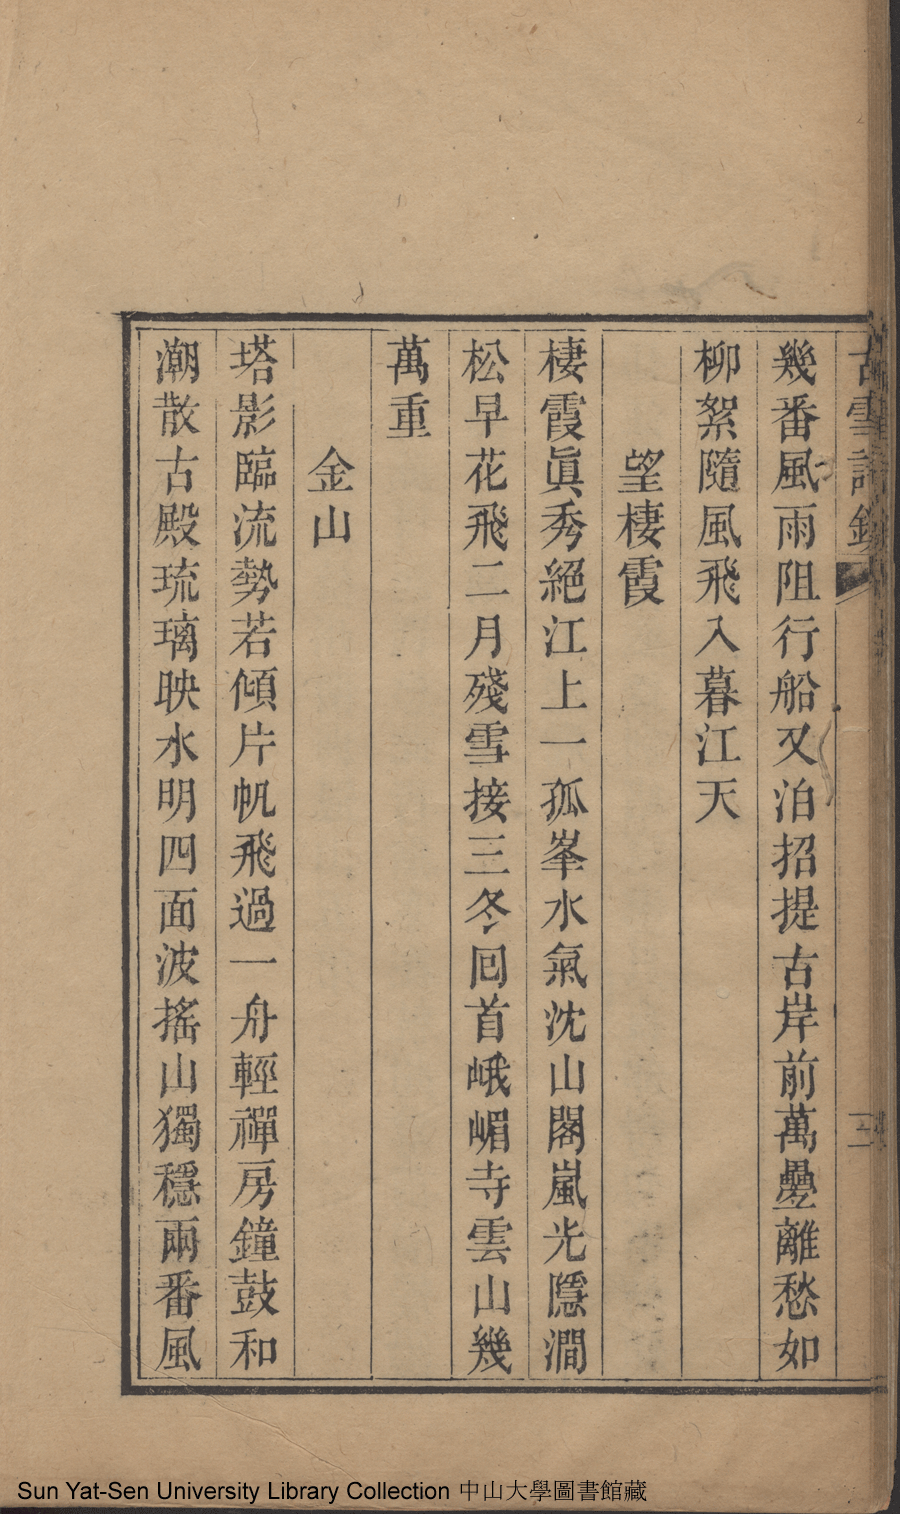 古雪詩鈔 三
幾番風雨阻行船又泊招提古岸前萬疊離愁如
柳絮隨風飛入暮江天
望棲霞
棲霞眞秀絕江上一孤峯水氣沈山閣嵐光隱澗
松早花飛二月殘雪接三冬回首峨嵋寺雲山幾
萬重
金山
塔影臨流勢若傾片帆飛過一舟輕禪房鐘鼓和
潮散古殿琉璃映水明四面波搖山獨穩兩番風
Sun Yat-Sen University Library Collection 中山大學圖書館藏